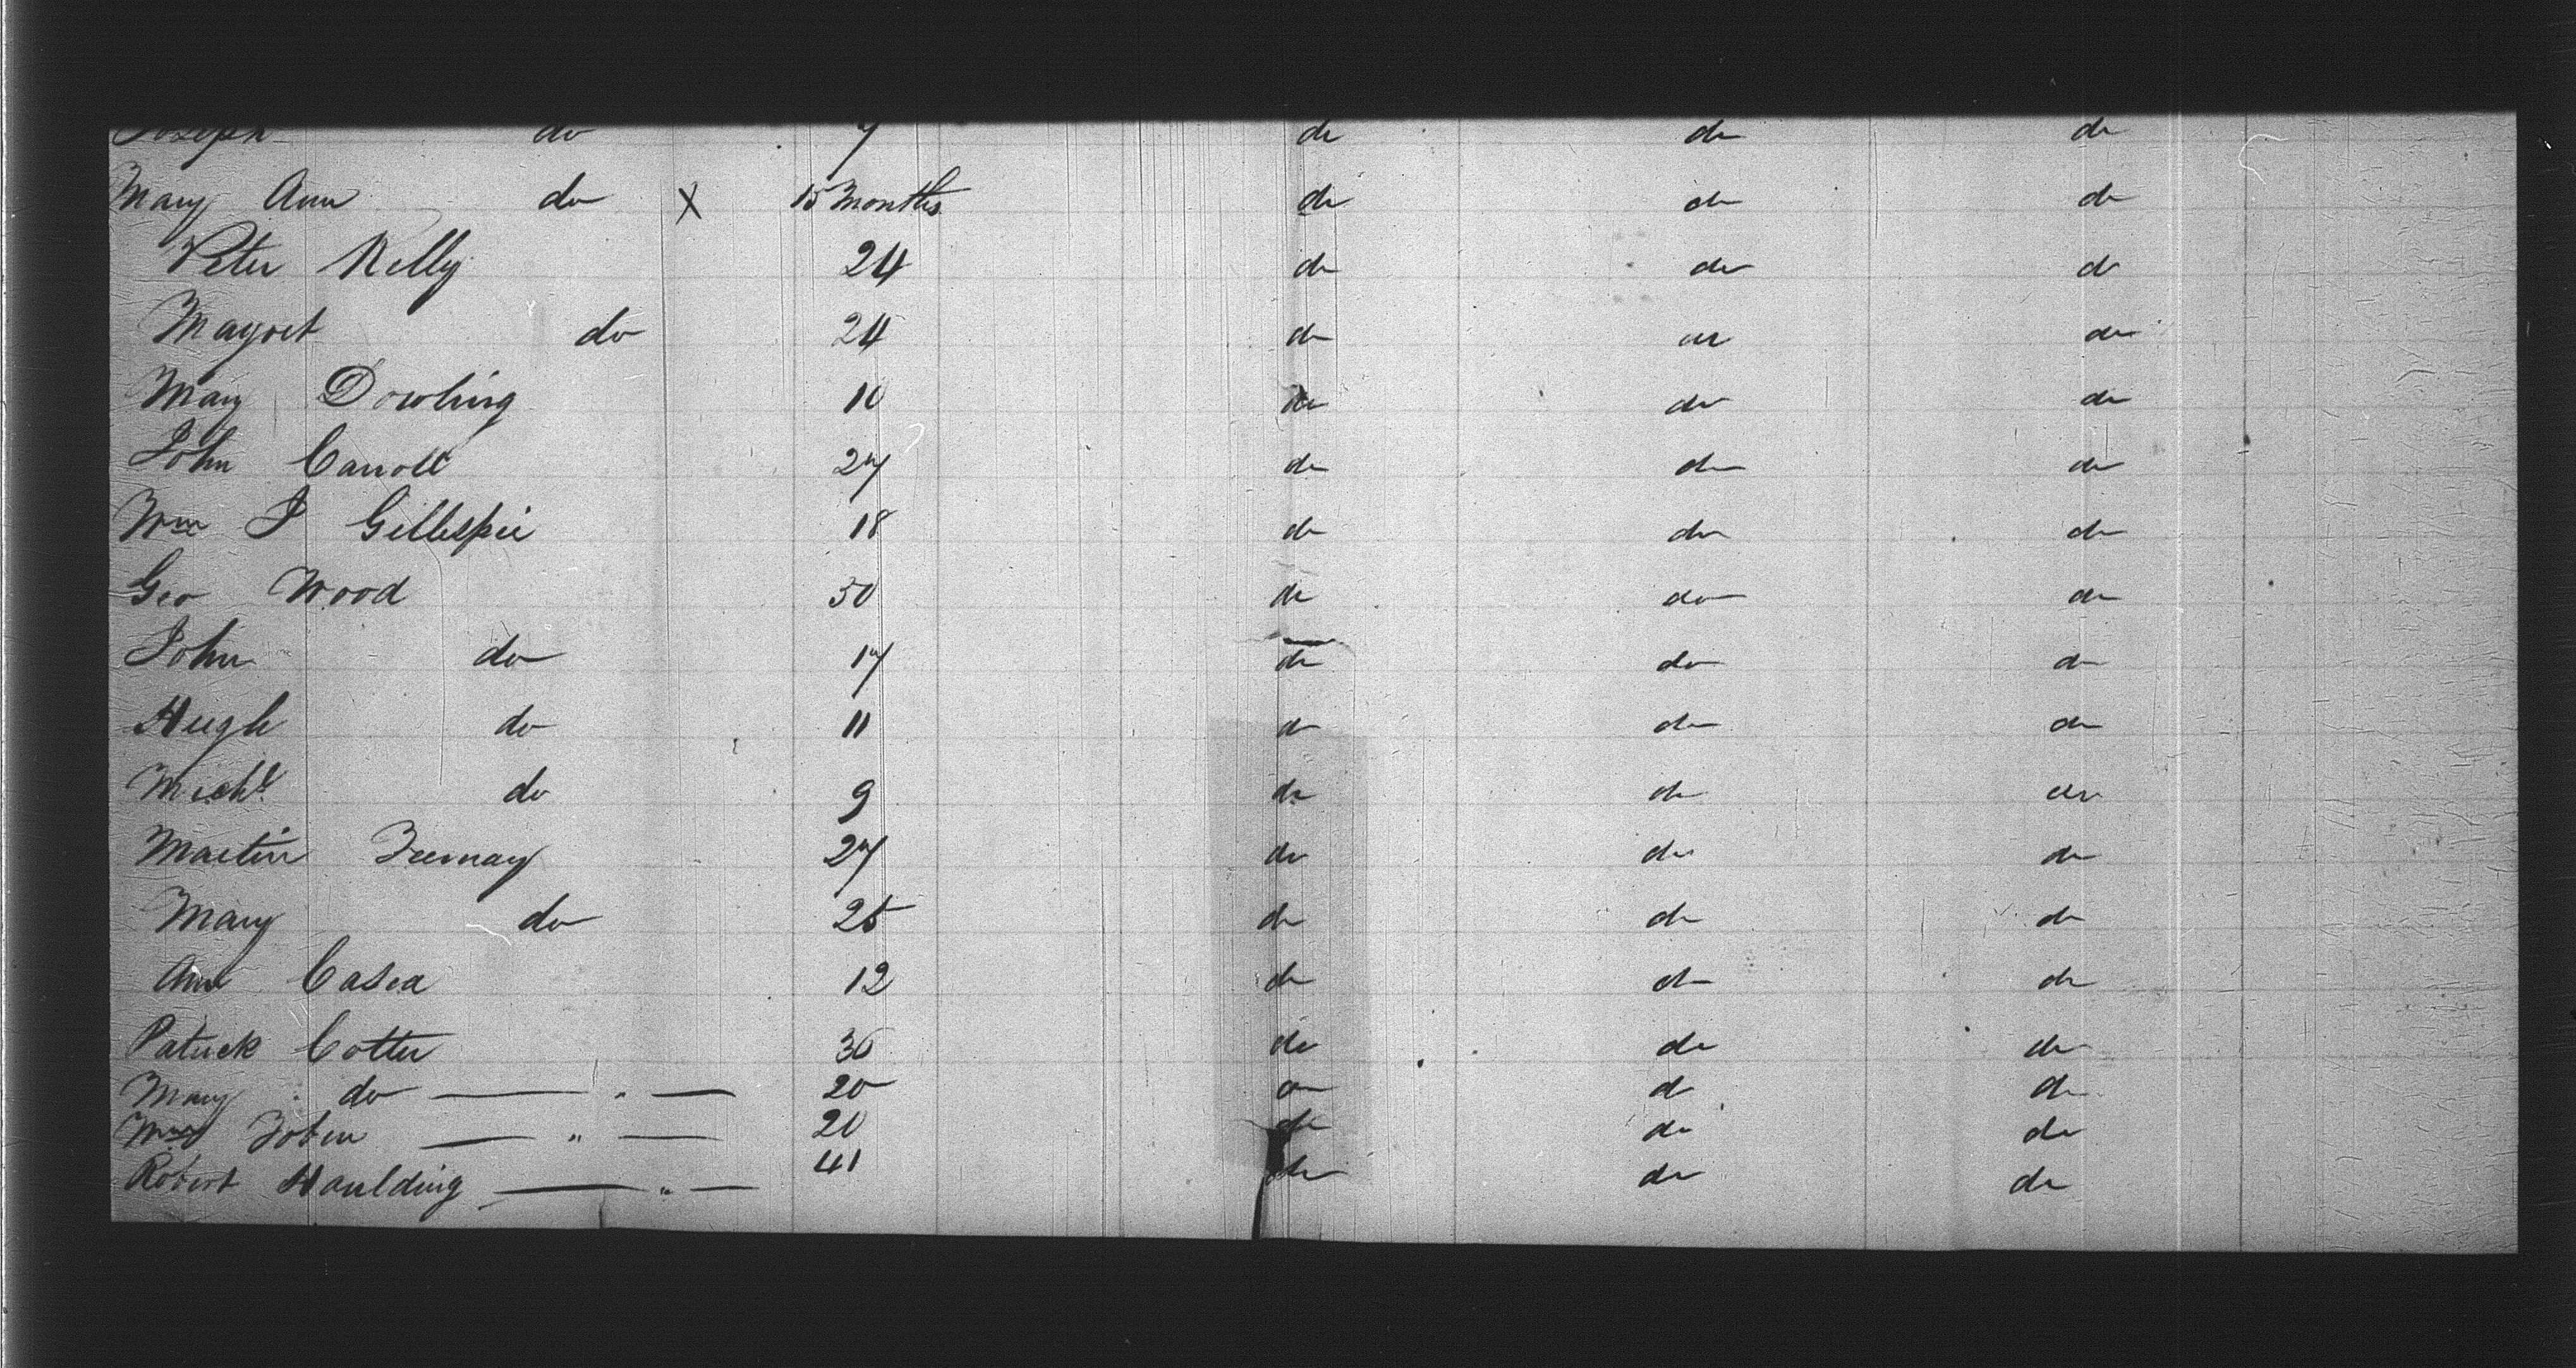 Joseph do 7 do do do
Mary Ann do X 15 Months do do do
Peter Kelly 24 do do do
Magret do 24 do do do
Mary Dowling 10 do do do
John Carroll 27 do do do
Wm J Gillespie 18 do do do
Geo Wood 50 do do do
John do 17 do do do
Hugh do 11 do do do
Michl do 9 do do do
Martin 27 do do do
Mary do 25 do do do
Ann Casea 12 do do do
Patrick Cotter 30 do do do
Mary do — " — 20 do do do
Tobin — " — 20 do do do
Robert Haulding — " — 41 do do do